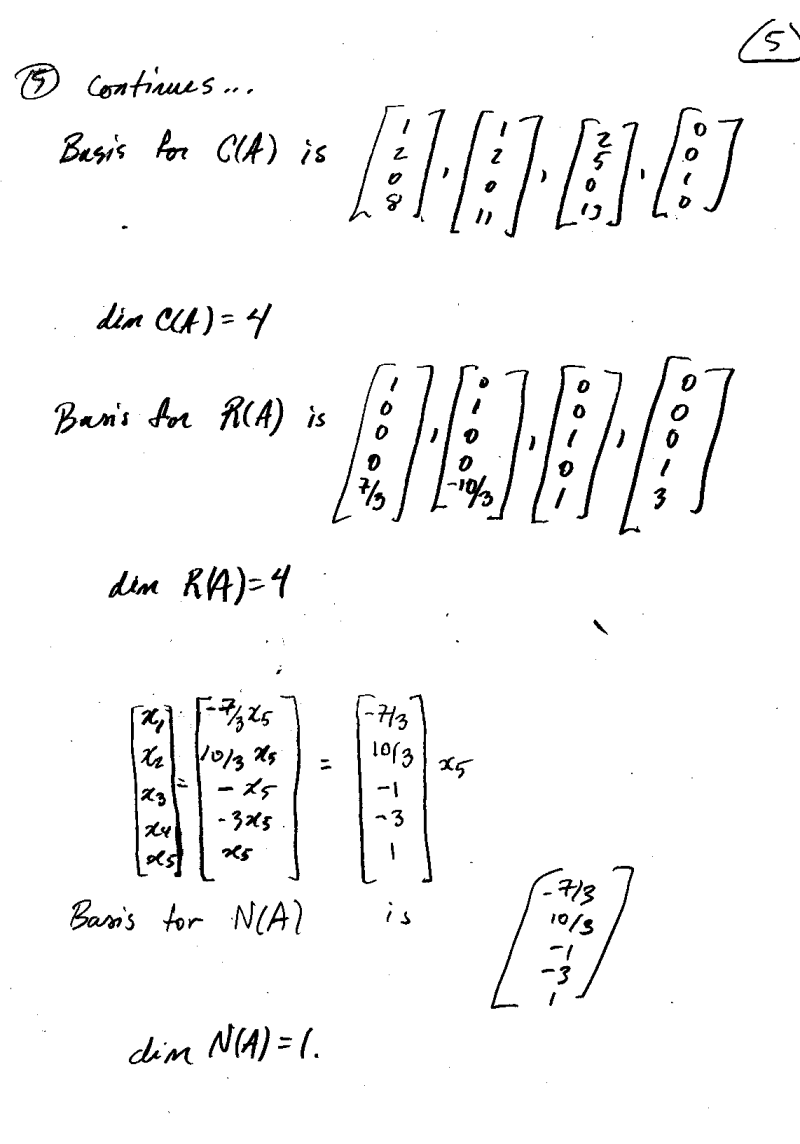 5
⑤ Continues...
Basis for C(A) is [1 2 0 8], [1 2 0 11], [2 5 0 19], [0 0 1 0]
dim C(A) = 4
Basis for R(A) is [1 0 0 0 7/3], [0 1 0 0 -10/3], [0 0 1 0 1], [0 0 0 1 3]
dim R(A)=4
[x1 x2 x3 x4 x5] = [-7/3 x5 10/3 x5 - x5 -3x5 x5] = [-7/3 10/3 -1 -3 1] x5
Basis for N(A) is [-7/3 10/3 -1 -3 1]
dim N(A) = 1.